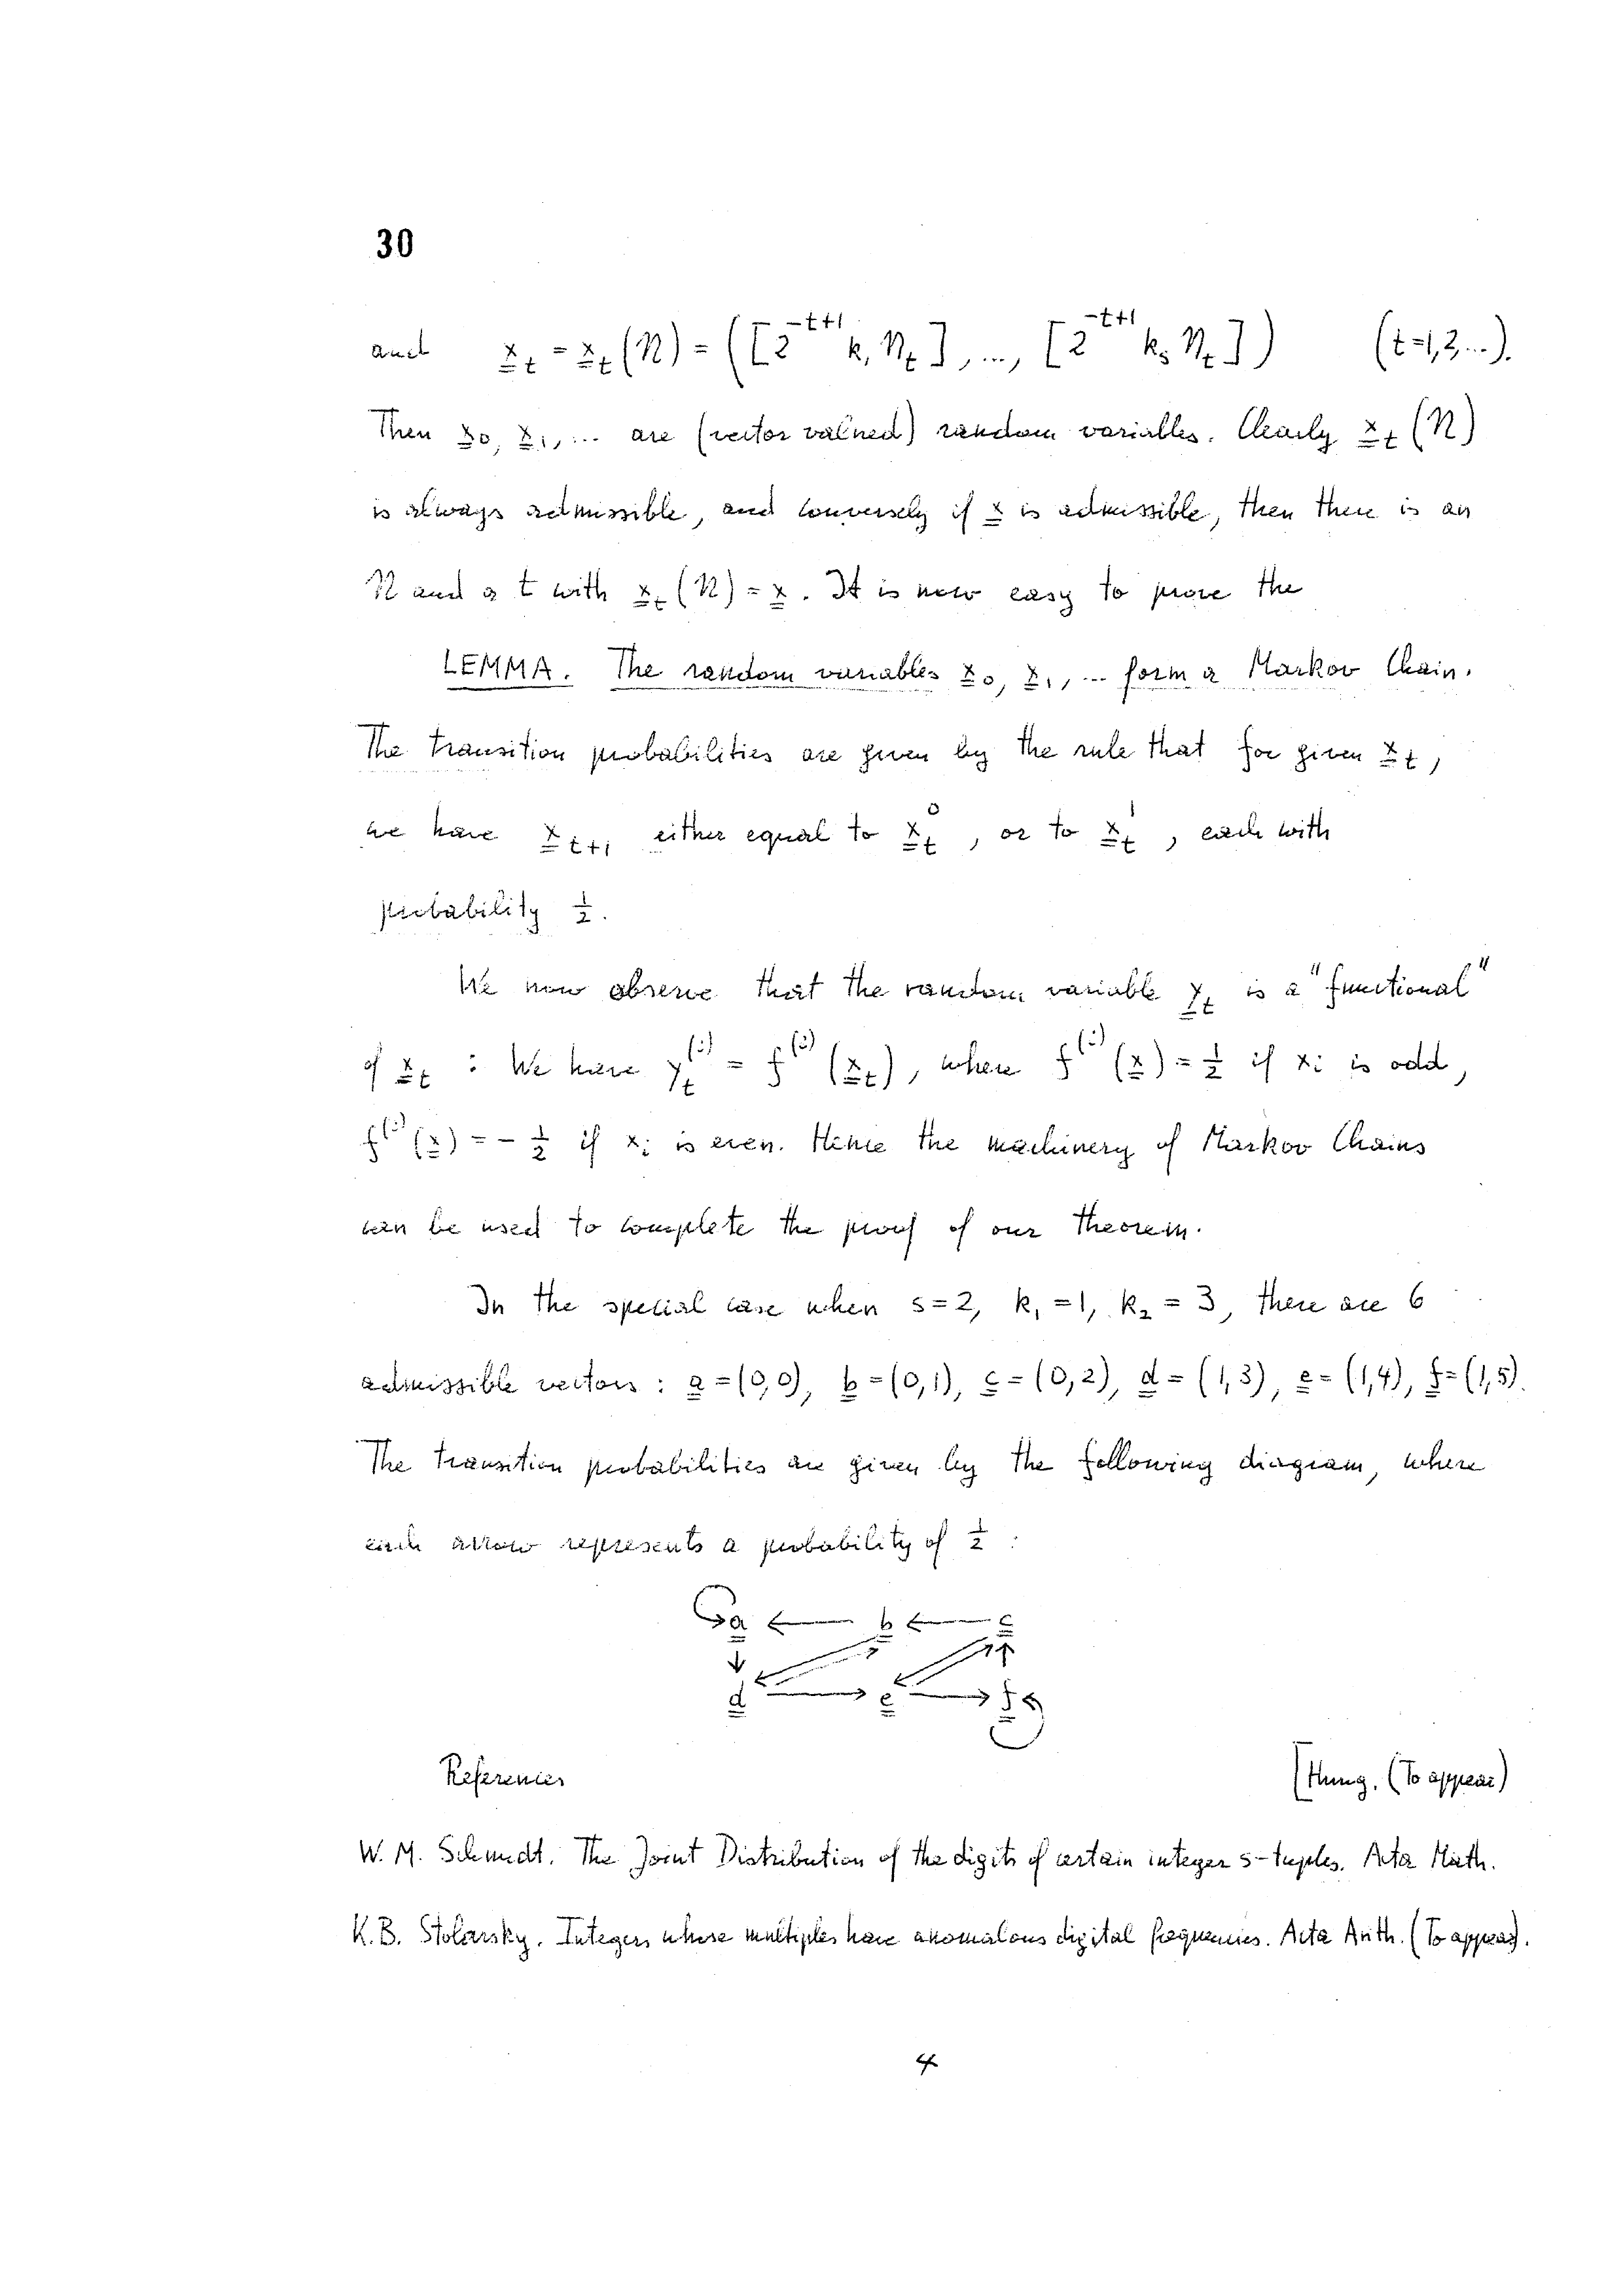 30
and x_t = x_t(N) = ([2^{-t+1} k_1 N_t], ..., [2^{-t+1} k_s N_t]) (t=1,2...).
Then x_0, x_1, ... are (vector valued) random variables. Clearly x_t(N)
is always admissible, and conversely if x is admissible, then there is an
N and a t with x_t(N) = x. It is now easy to prove the
LEMMA. The random variables x_0, x_1, ... form a Markov Chain.
The transition probabilities are given by the rule that for given x_t,
we have x_{t+1} either equal to x_t^0, or to x_t^1, each with
probability 1/2.
We now observe that the random variable y_t is a "functional"
of x_t : We have y_t^{(i)} = f^{(i)}(x_t), where f^{(i)}(x) = 1/2 if x_i is odd,
f^{(i)}(x) = - 1/2 if x_i is even. Hence the machinery of Markov Chains
can be used to complete the proof of our theorem.
In the special case when s=2, k_1 = 1, k_2 = 3, there are 6
admissible vectors : a=(0,0), b=(0,1), c=(0,2), d=(1,3), e=(1,4), f=(1,5).
The transition probabilities are given by the following diagram, where
each arrow represents a probability of 1/2 :
a ← b ← c
d → e → f
References
[Hung. (To appear)
W. M. Schmidt. The Joint Distribution of the digits of certain integer s-tuples. Acta Math.
K.B. Stolarsky. Integers whose multiples have anomalous digital frequencies. Acta Arith. (To appear).
4